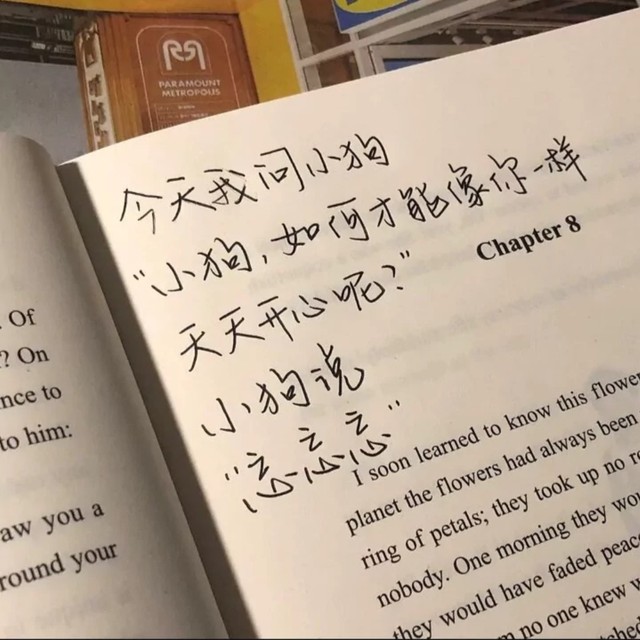 PARAMOUNT
METROPOLIS
今天我问小狗
“小狗,如何才能像你一样
天天开心呢?”
小狗说
“忘忘忘”
Chapter 8
. Of
? On
nce to
to him:
aw you a
round your
I soon learned to know this flower
planet the flowers had always been
ring of petals; they took up no
nobody. One morning they wo
they would have faded peace
no one knew